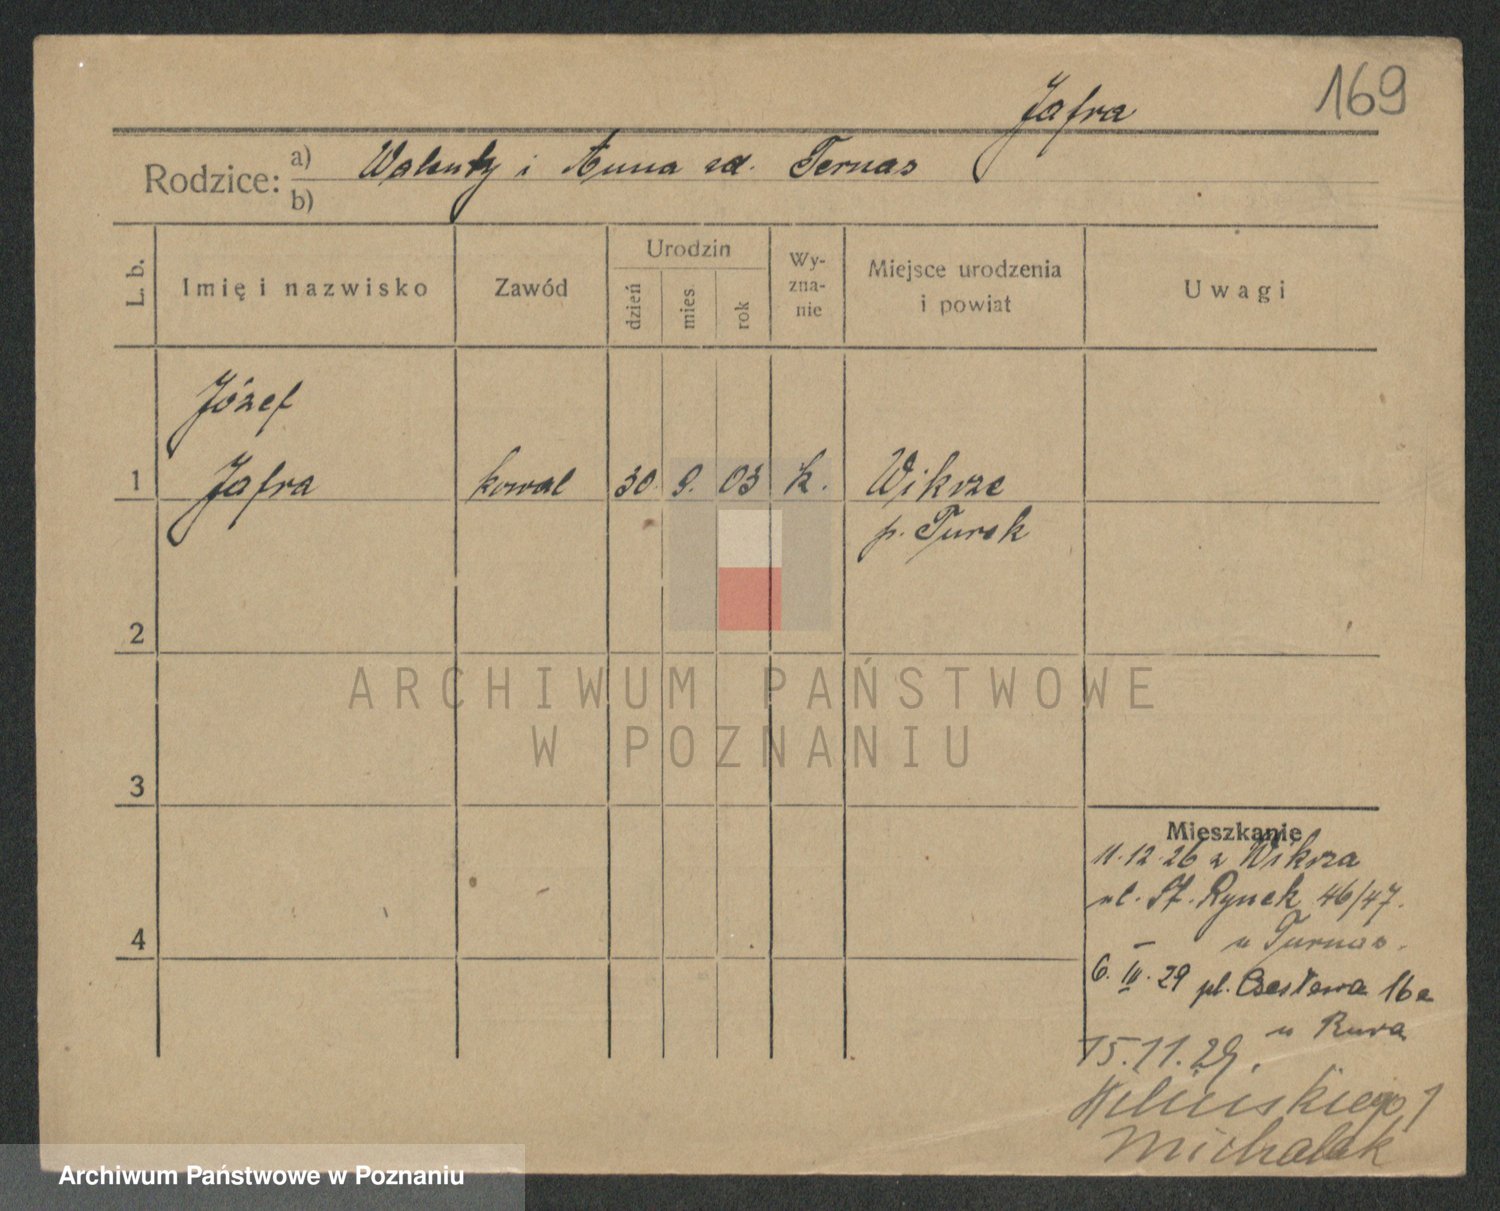 169
Jafra
Rodzice: a) Walenty i Anna zd. Ternas
b)
L. b. Imię i nazwisko Zawód Urodzin dzień mies. rok Wy-zna-nie Miejsce urodzenia i powiat Uwagi
Józef
1 Jafra kowal 30. 9. 03 k. Wikrze
p. Turek
2
3
4
Mieszkanie
11.12.26 z Wikrza
ul. St. Rynek 46/47.
u Turnas.
6. III. 29 pl. 16a
u Rura
15.11.29.
1
Michalak
ARCHIWUM PAŃSTWOWE
W POZNANIU
Archiwum Państwowe w Poznaniu